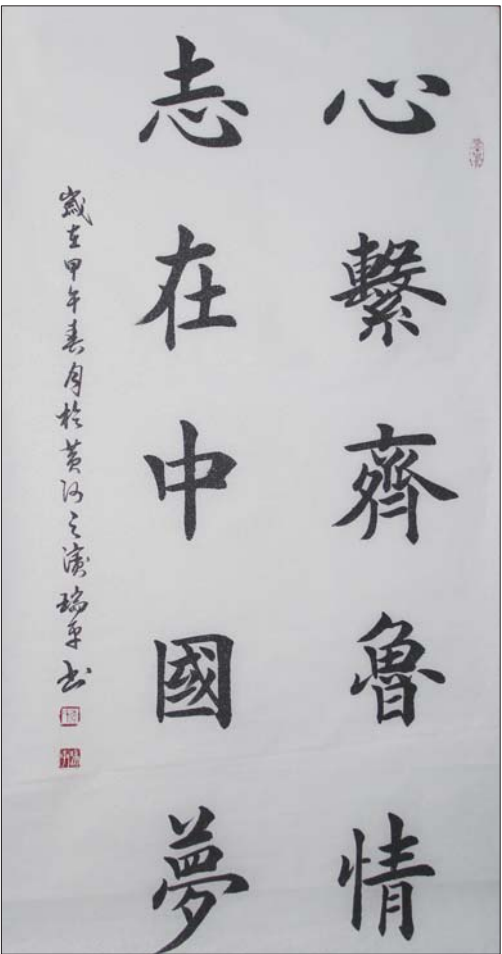 心繫齊魯情
志在中國夢
歲在甲午春月於黃河之濱瑞平书